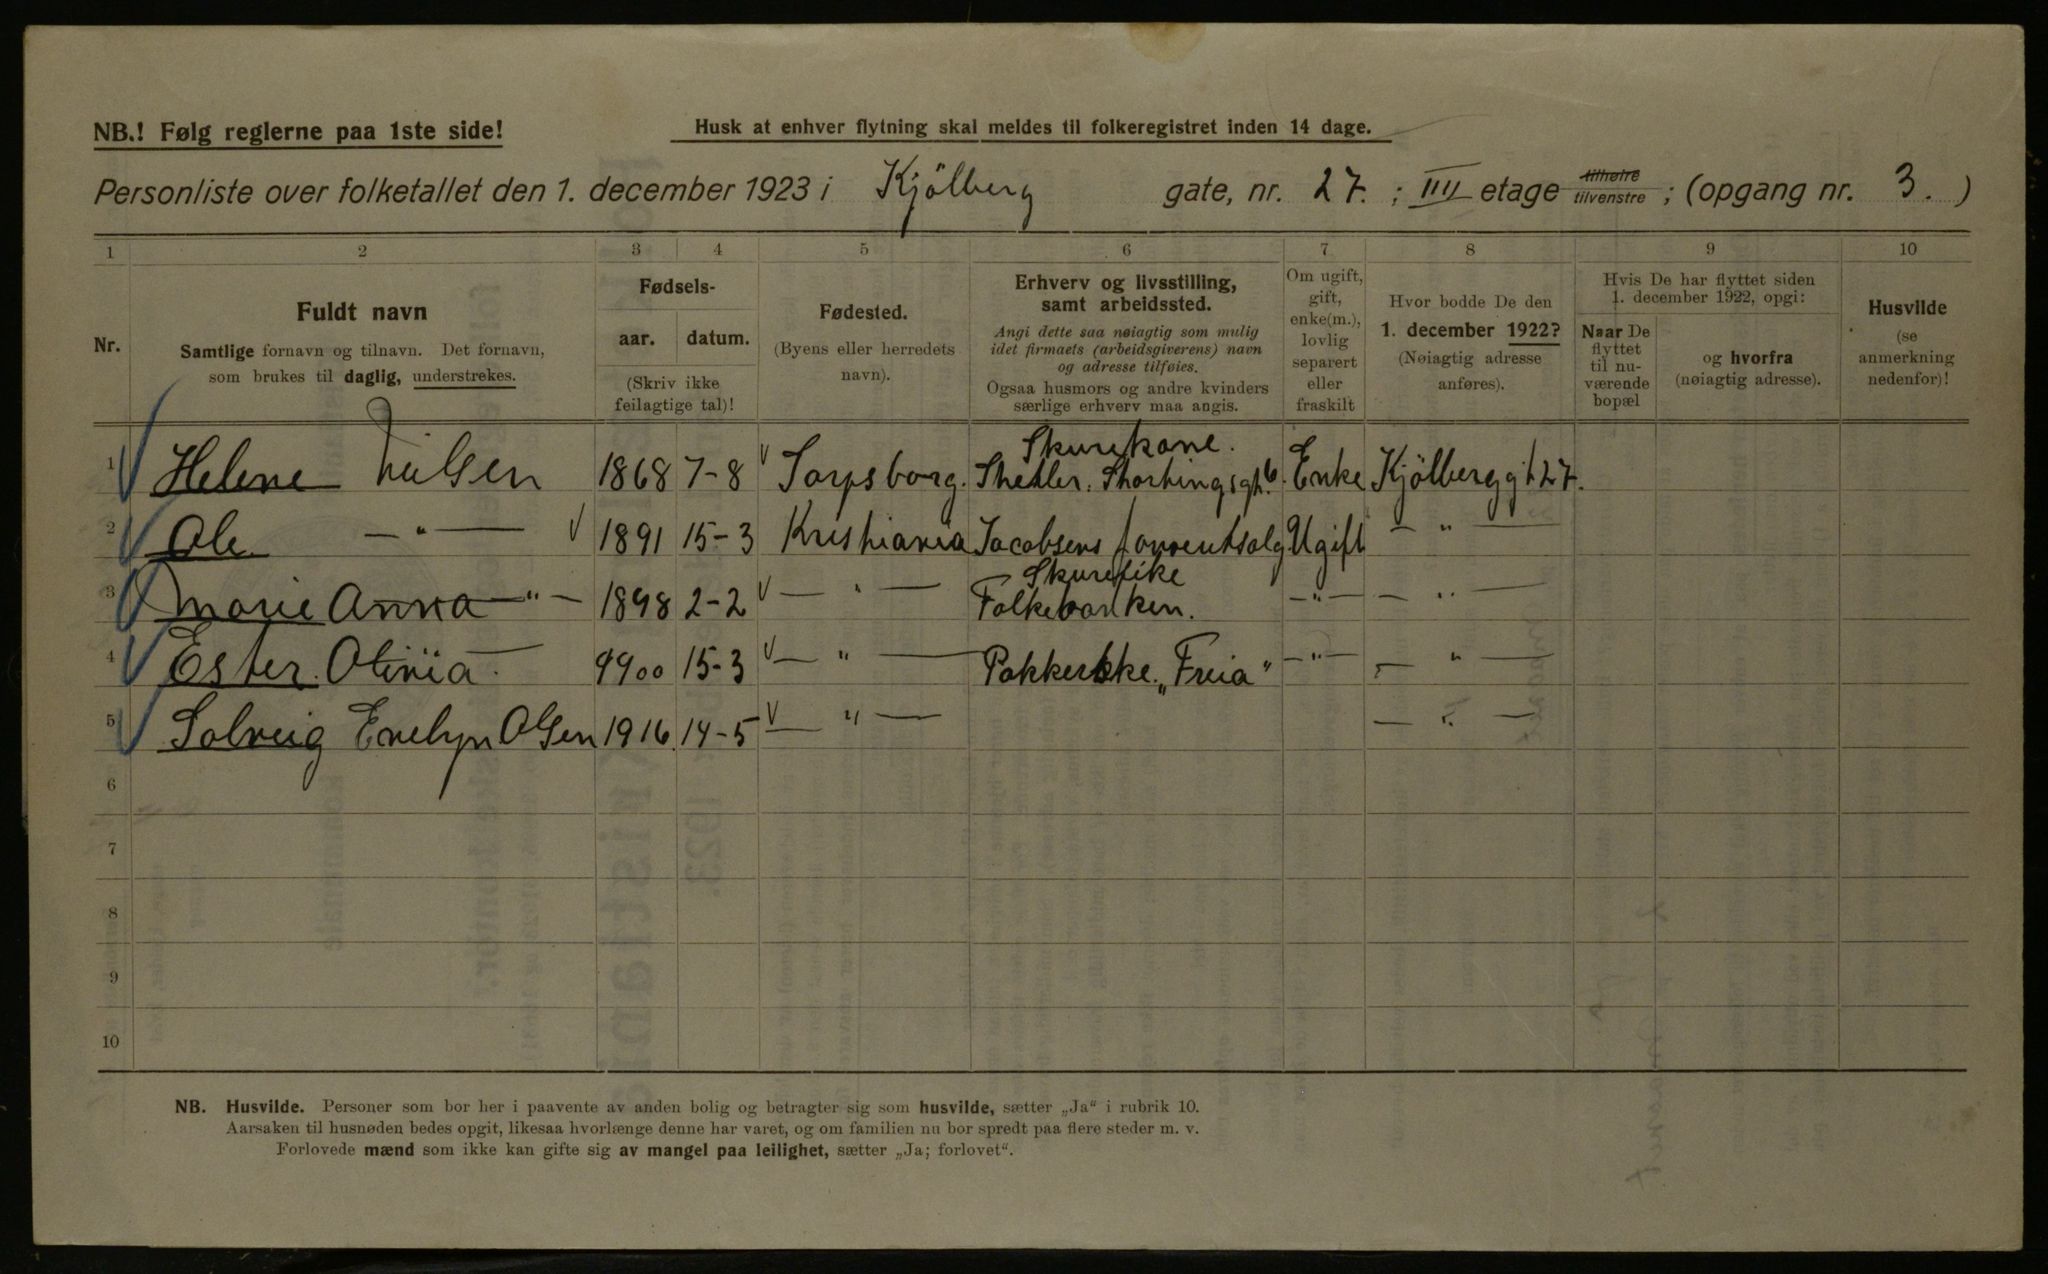 NB.! Følg reglerne paa 1ste side!
Husk at enhver flytning skal meldes til folkeregistret inden 14 dage.
Personliste over folketallet den 1. december 1923 i Kjölberg gate, nr. 27. ; IIII etage tilhøire tilvenstre ; (opgang nr. 3. )
1 2 3 4 5 6 7 8 9 10
Nr.
Fuldt navn
Samtlige fornavn og tilnavn. Det fornavn,
som brukes til daglig, understrekes.
Fødsels-
aar. datum.
(Skriv ikke
feilagtige tal)!
Fødested.
(Byens eller herredets
navn).
Erhverv og livsstilling,
samt arbeidssted.
Angi dette saa nøiagtig som mulig
idet firmaets (arbeidsgiverens) navn
og adresse tilføies.
Ogsaa husmors og andre kvinders
særlige erhverv maa angis.
Om ugift,
gift,
enke(m.),
lovlig
separert
eller
fraskilt
Hvor bodde De den
1. december 1922?
(Nøiagtig adresse
anføres).
Hvis De har flyttet siden
1. december 1922, opgi:
Naar De
flyttet
til nu-
værende
bopæl
og hvorfra
(nøiagtig adresse).
Husvilde
(se
anmerkning
nedenfor)!
Skurekone.
1 Helene Nilsen 1868 7-8 Sarpsborg. Stortingsgt. 6. Enke Kjölberggt 27.
2 Ole — " — 1891 15-3 Kristiania Jacobsens Ugift — " —
Skurepike
3 Marie Anna — " — 1898 2-2 — " — Folkebanken. — " — — " —
4 Ester Olivia — 1900 15-3 — " — Pakkerske. "Freia" — " — — " —
5 Solveig Evelyn Olsen 1916 14-5 — " — — " —
6
7
8
9
10
NB. Husvilde. Personer som bor her i paavente av anden bolig og betragter sig som husvilde, sætter „Ja“ i rubrik 10.
Aarsaken til husnøden bedes opgit, likesaa hvorlænge denne har varet, og om familien nu bor spredt paa flere steder m. v.
Forlovede mænd som ikke kan gifte sig av mangel paa leilighet, sætter „Ja; forlovet“.